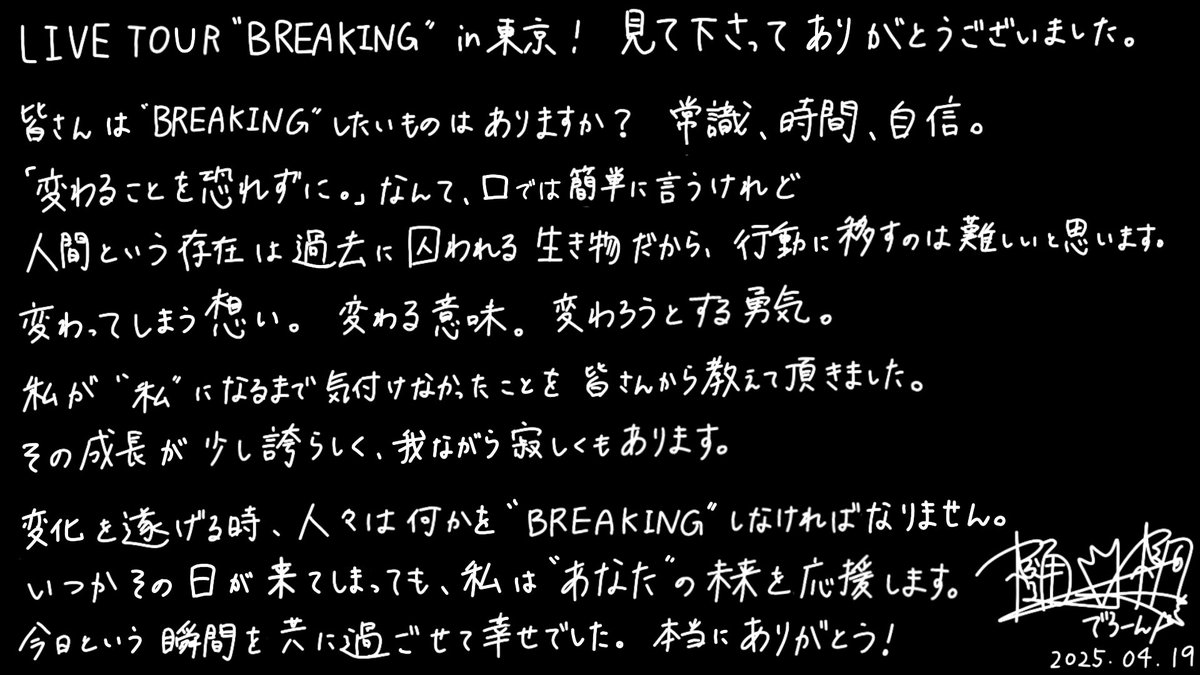 LIVE TOUR "BREAKING" in 東京! 見て下さってありがとうございました。
皆さんは"BREAKING"したいものはありますか? 常識、時間、自信。
「変わることを恐れずに。」なんて、口では簡単に言うけれど
人間という存在は過去に囚われる生き物だから、行動に移すのは難しいと思います。
変わってしまう想い。 変わる意味。 変わろうとする勇気。
私が"私"になるまで気付けなかったことを皆さんから教えて頂きました。
その成長が少し誇らしく、我ながら寂しくもあります。
変化を遂げる時、人々は何かを"BREAKING"しなければなりません。
いつかその日が来てしまっても、私は"あなた"の未来を応援します。
今日という瞬間を共に過ごせて幸せでした。 本当にありがとう!
でろーん
2025.04.19